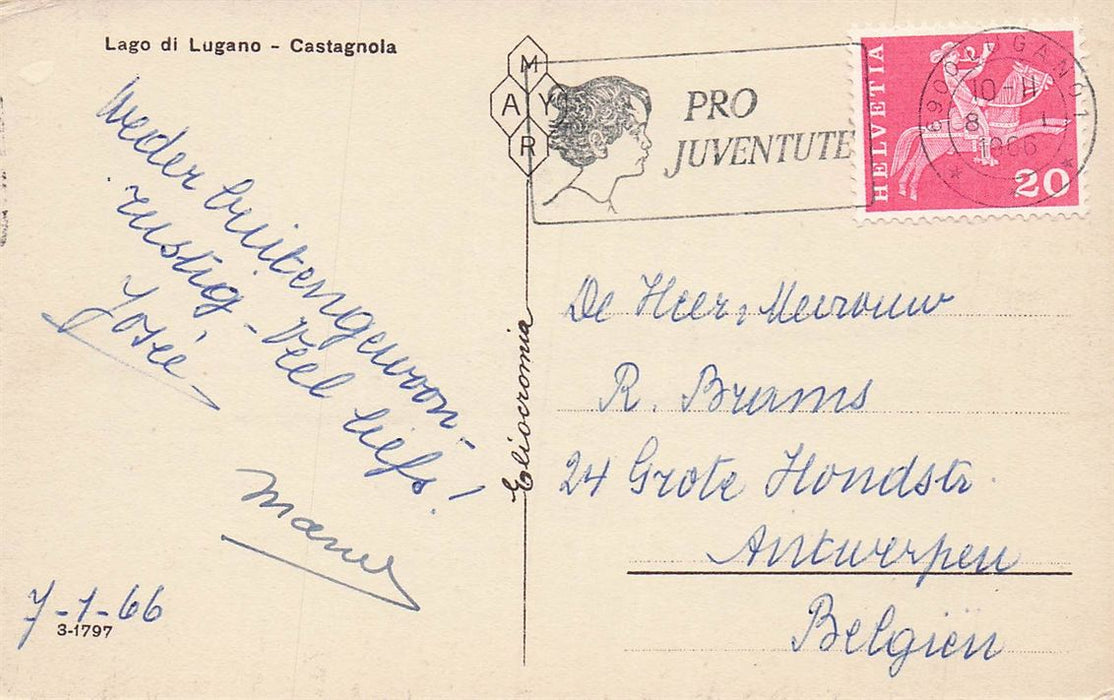 Lago di Lugano - Castagnola
Weder buitengewoon
rustig - Veel liefs!
Josée
7-1-66
3-1797
MAYR
Eliocromia
PRO
JUVENTUTE
HELVETIA
20
6900 LUGANO 1
10-11
8 1
1966
De Heer, Mevrouw
R. Brams
24 Grote Hondstr.
Antwerpen
Belgiën